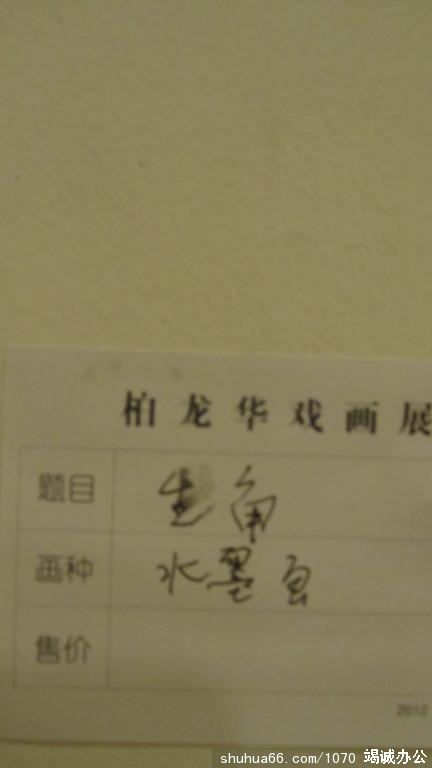 柏龙华戏画展
题目 生角
画种 水墨
售价
2012
shuhua66.com/1070 竭诚办公